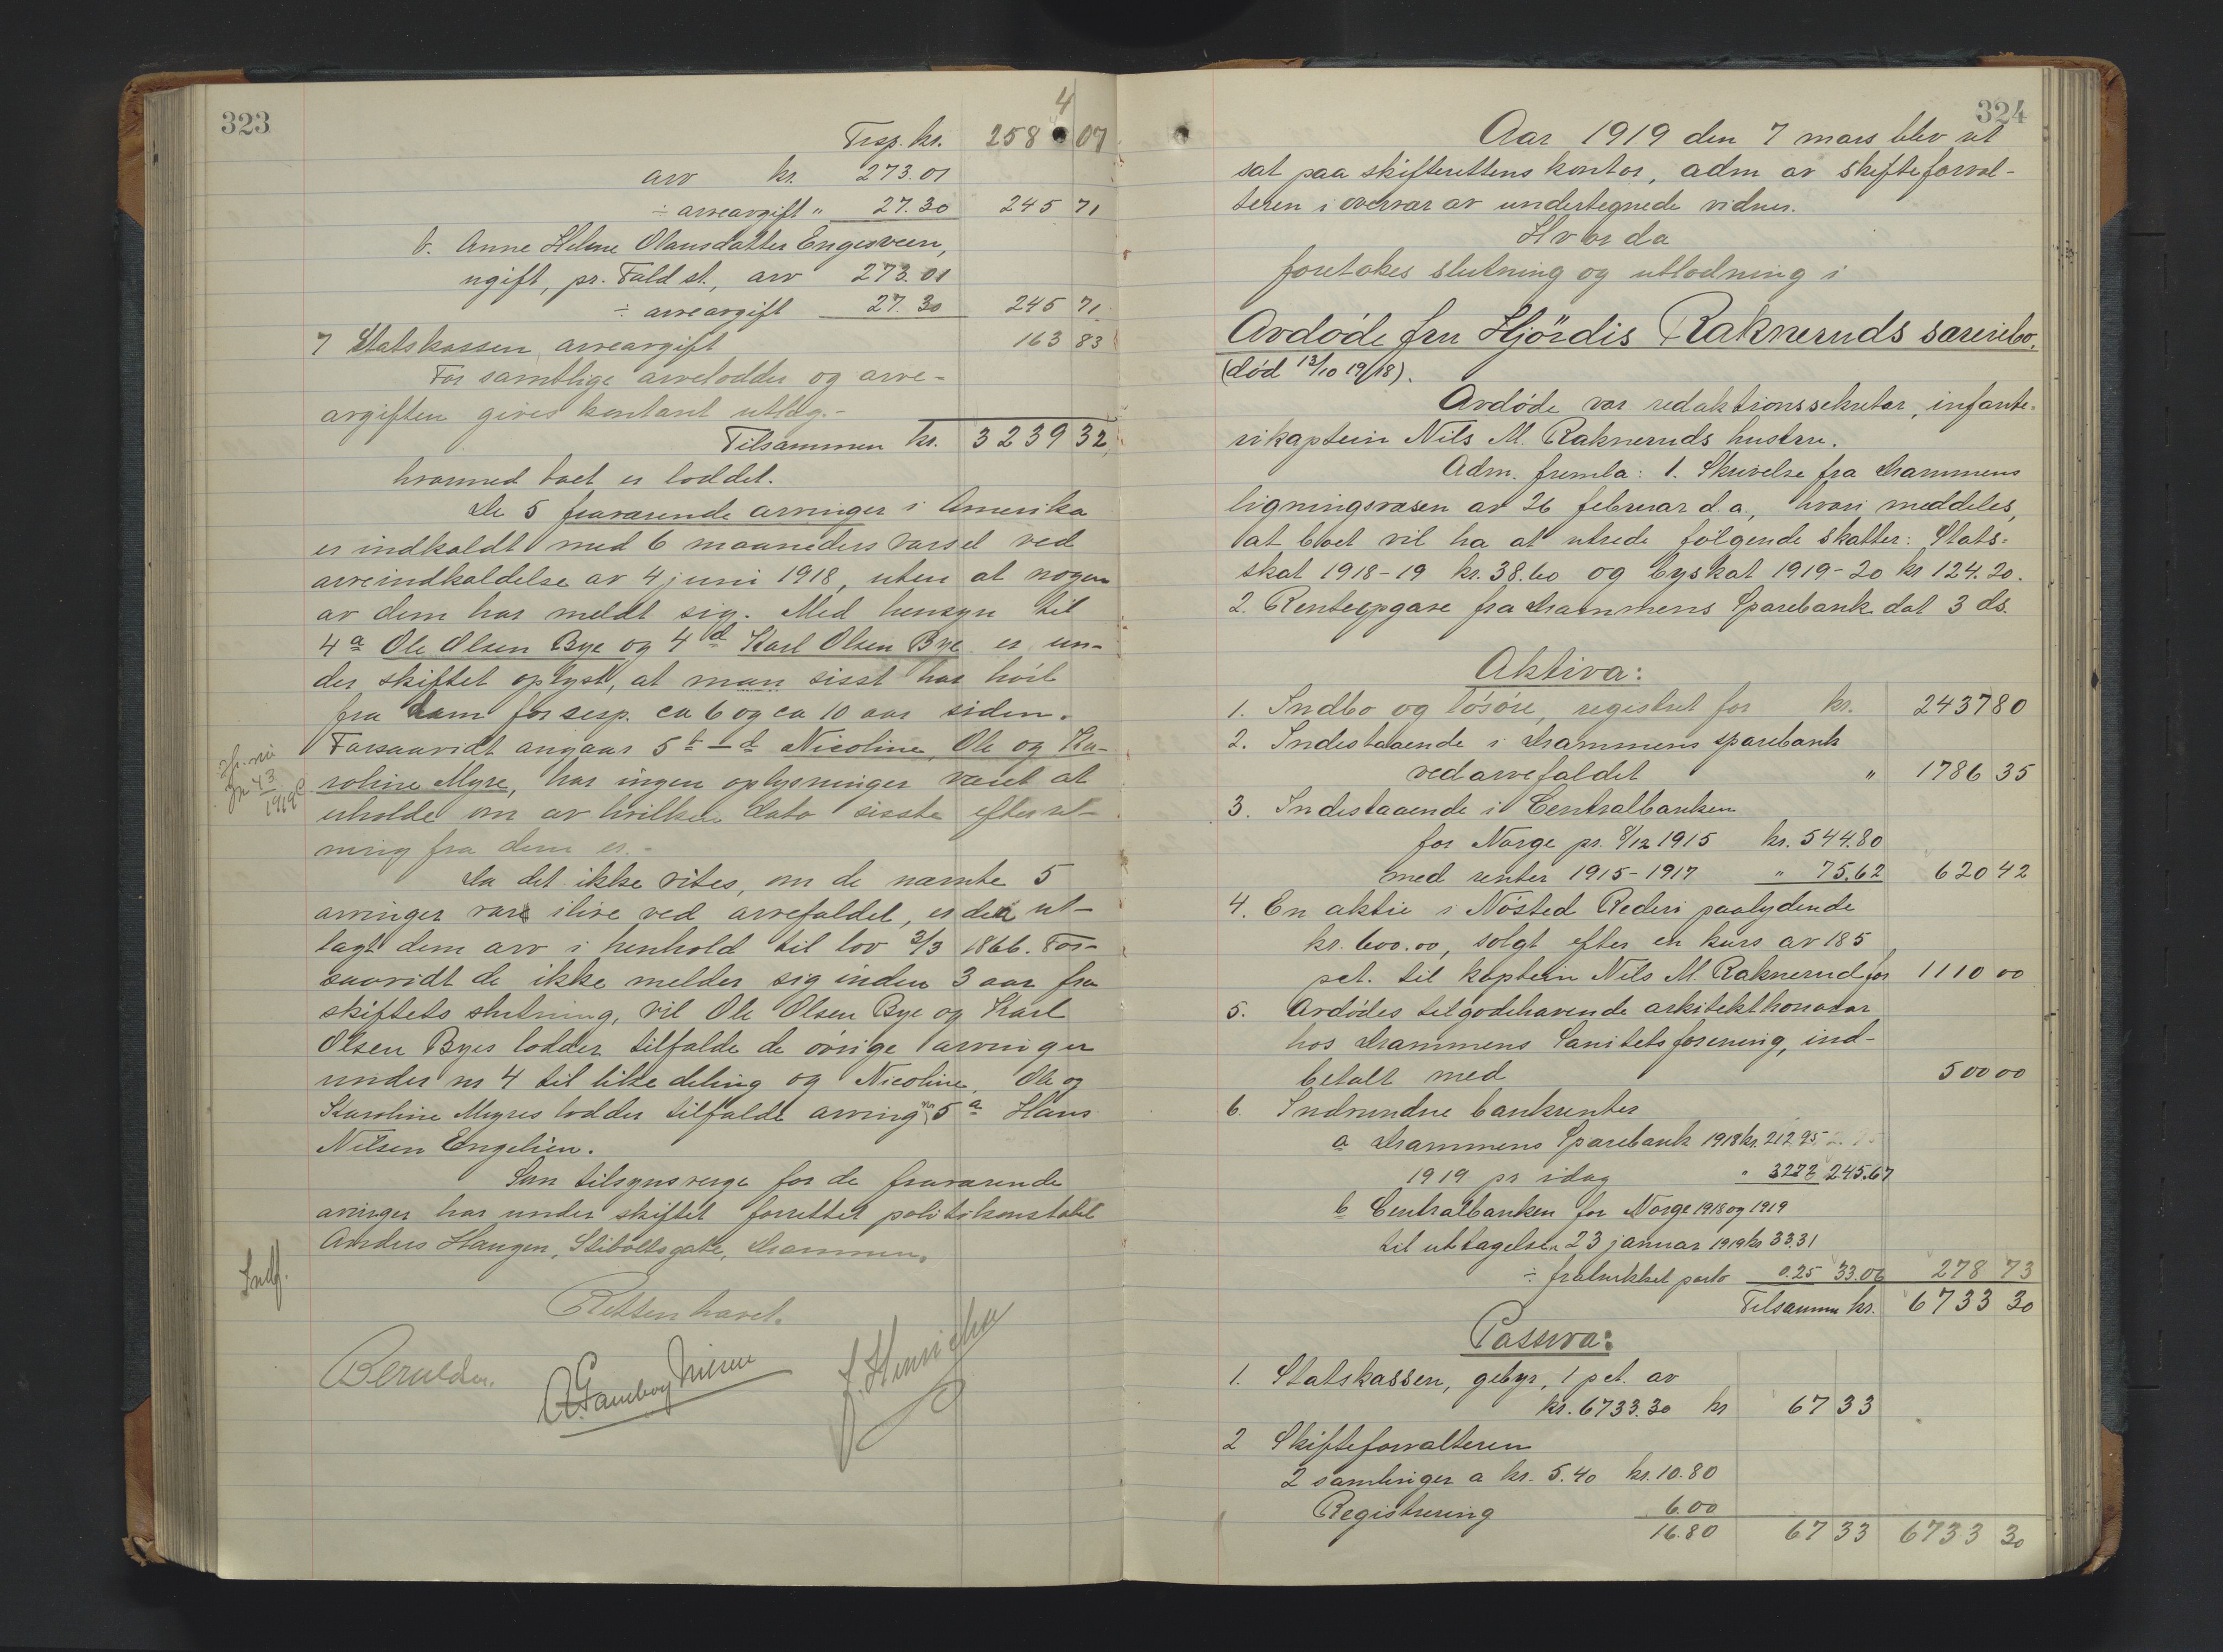 323
4
Trsp. kr. 258 07
arv kr. 273.01
÷ arveavgift " 27.30 245 71
b. Anne Helene Olausdatter Engesveen,
ugift, pr. Fald st., arv 273.01
÷ arveavgift 27.30 245 71
7 Statskassen, arveavgift 163 83
For samtlige arvelodder og arve-
avgiften gives kontant utlæg.-
Tilsammen kr. 3239 32
hvormed boet er loddet.
De 5 fraværende arvinger i Amerika
er indkaldt med 6 maaneders varsel ved
arveindkaldelse av 4 juni 1918, uten at nogen
av dem har meldt sig. Med hensyn til
4 a Ole Olsen Bye og 4 d Karl Olsen Bye er un-
der skiftet oplyst, at man sisst har hørt
fra dem for resp. ca 6 og ca 10 aar siden.
Forsaavidt angaar 5 b - d Nicoline, Ole og Ka-
roline Myre, har ingen oplysninger været at
erholde om av hvilken dato sisste efterret-
ning fra dem er.-
Da det ikke vites, om de nævnte 5
arvinger var ilive ved arvefaldet, er der ut-
lagt dem arv i henhold til lov 3/3 1866. For-
saavidt de ikke melder sig inden 3 aar fra
skiftets slutning, vil Ole Olsen Bye og Karl
Olsen Byes lodder tilfalde de øvrige arvinger
under nr 4 til like deling og Nicoline, Ole og
Karoline Myres lodder tilfalde arving nr 5 a Hans
Nilsen Engelien.
Som tilsynsverge for de fraværende
arvinger har under skiftet forrettet politikonstabel
Anders Haugen, Stiboltsgate, Drammen.
Indf.
Retten hævet.
324
Aar 1919 den 7 mars blev ret
sat paa skifterettens kontor, adm av skifteforval-
teren i overvær av undertegnede vidner.
Hvorda
foretokes slutning og utlodning i
Avdøde fru Hjördis Rakneruds særeiebo.
(død 13/10 1918).
Avdøde var redaktionssekretær, infante-
rikaptein Nils M. Rakneruds hustru.
Adm. fremla: 1. Skrivelse fra Drammens
ligningsvæsen av 26 februar d.a., hvori meddeles,
at boet vil ha at utrede følgende skatter: Stats-
skat 1918-19 kr. 38.60 og byskat 1919-20 kr 124.20.
2. Renteopgave fra Drammens Sparebank dat 3 ds.
Aktiva:
1. Indbo og løsøre, registret for kr. 2437 80
2. Indestaaende i Drammens sparebank
ved arvefaldet " 1786 35
3. Indestaaende i Centralbanken
for Norge pr. 8/12 1915 kr. 544.80
med renter 1915-1917 " 75.62 620 42
4. En aktie i Nøsted Rederi paalydende
kr. 600.00, solgt efter en kurs av 185
pct. til kaptein Nils M. Raknerud for 1110 00
5. Avdødes tilgodehavende arkitekthonorar
hos Drammens Sanitetsforening, ind-
betalt med 500 00
6. Indvundne bankrenter
a Drammens Sparebank 1918 kr. 212.95
1919 pr idag " 32.72 245.67
b Centralbanken for Norge 1918 og 1919
til uttagelsen 23 januar 1919 kr 33.31
÷ fratrukket porto 0.25 33.06 278 73
Tilsammen kr. 6733 30
Passiva:
1. Statskassen, gebyr, 1 pct. av
kr. 6733.30 kr 67 33
2 Skifteforvalteren
2 samlinger a kr. 5.40 kr. 10.80
Registrering 6.00
16.80 67 33 6733 30